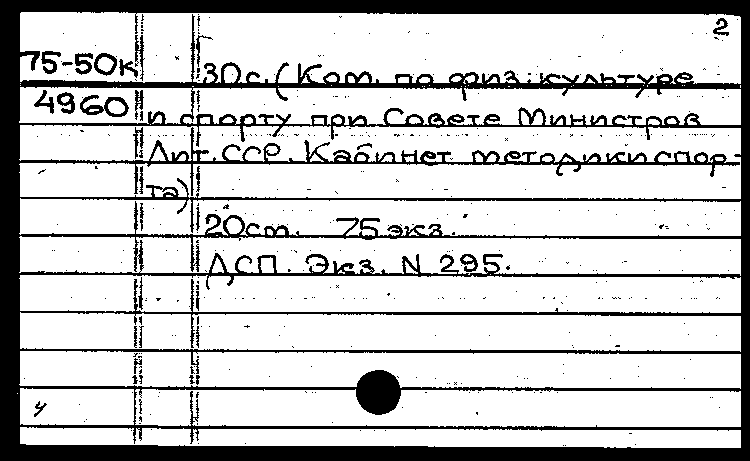 2
75-50к
4960
30с. (Ком. по физ. культуре
и спорту при Совете Министров
Лит. ССР. Кабинет методики спор-
та)
20см. 75 экз.
ДСП. Экз. N 295.